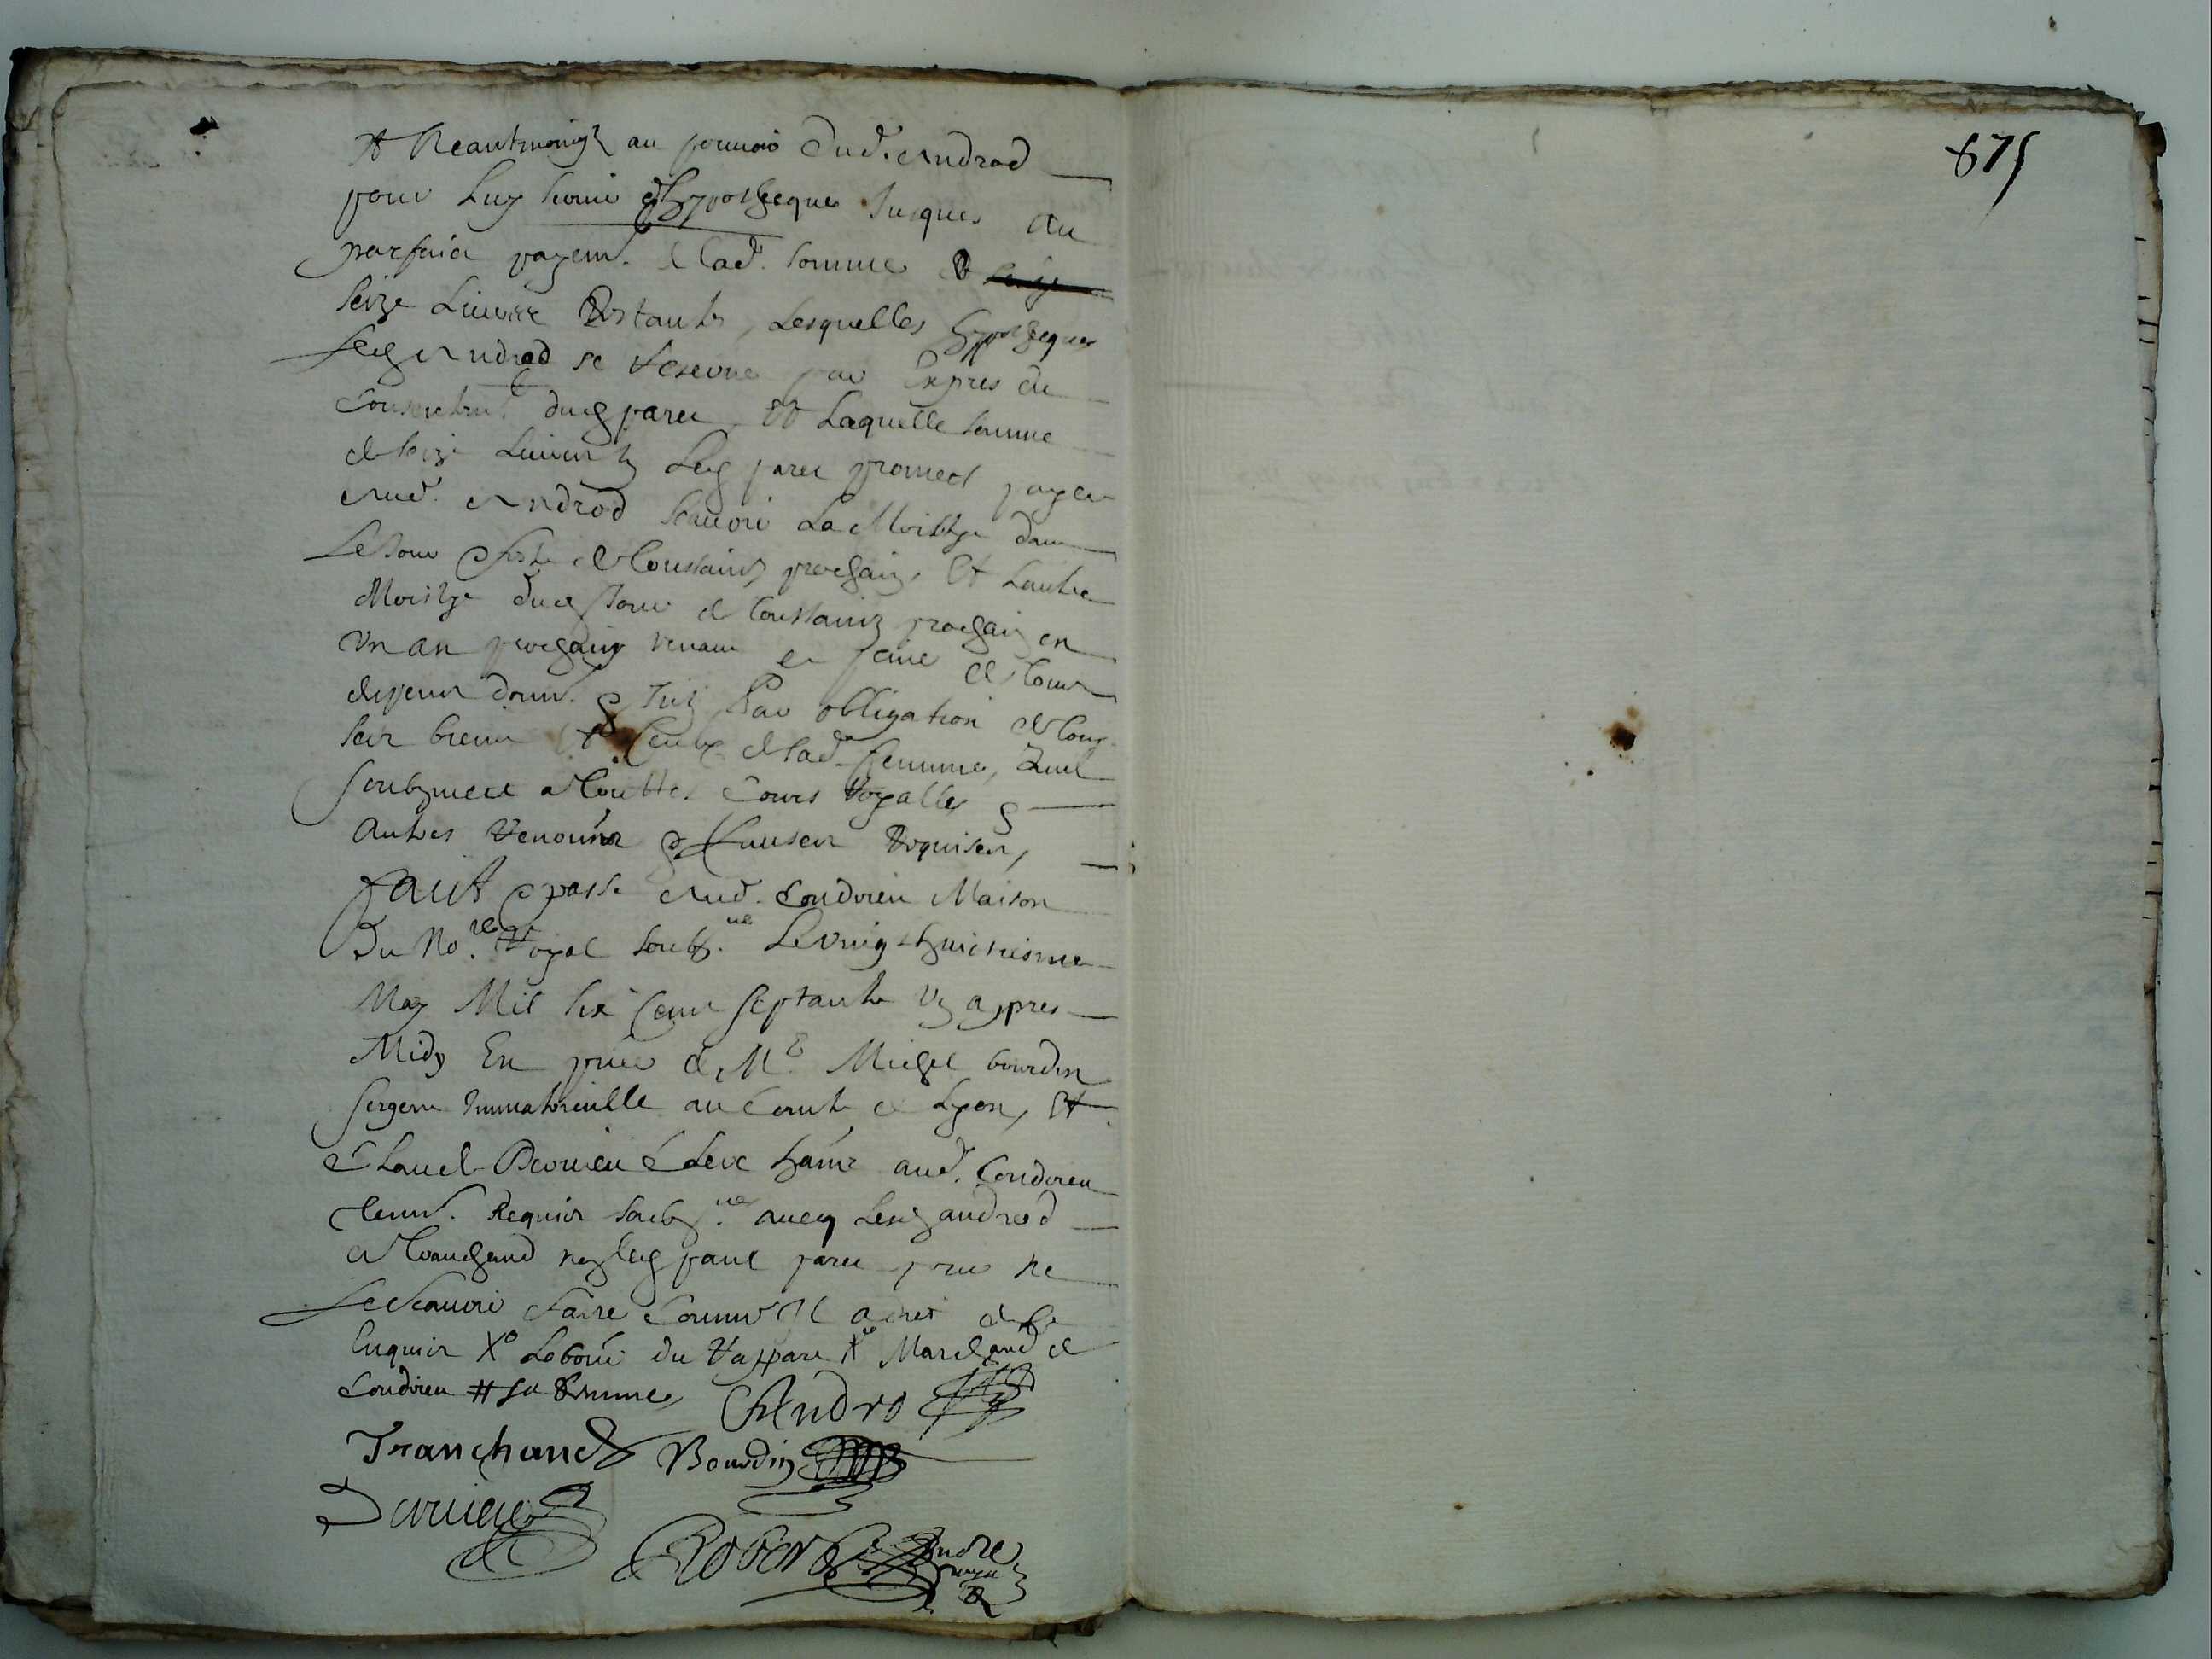 Et Neantmoing au pouuoir dud. Androd
pour Luy seruir dhypotheque Jusques au
parfaict payem. de lad. somme de
seize Liures Restantes, Lesquelles hypotheques
Led Androd se reserue par Expres du
Consentem. dud parei Et Laquelle somme
de seize Liures Led parei promect payer
aud. Androd scauoir La Moitye dans
Le Jour feste de Toussainct prochain Et Lautre
Moitye dud Jour de Toussainct prochain en
Vn an prochain venant a peine de tous
despens dom. Par obligation de tous
ses biens Et Ceulx de lad. femme,
soubzmect a Touttes Cours Royalles
Autres Renoúce Clauses Requises,
Faict & passé aud. Condrieu Maison
Du No.re Royal soubz.né Le vingt huictiesme
May Mil six Cent septante Vn appres
Midy En pnce de M.e Michel bourdin
sergent Immatriculle au Comte de Lyon, Et
Claude Deruieu Clerc aud. Condrieu
tesm. Requis soubz.nes auecq Lesd androd
& tranchand non led paul parei pour ne
Le scauoir faire Comme Il a dict de ce
Enquis X.o Marchand de
Condrieu # sa femme
CAndro
Tranchand Bourdin
Deruieu
Robert
875